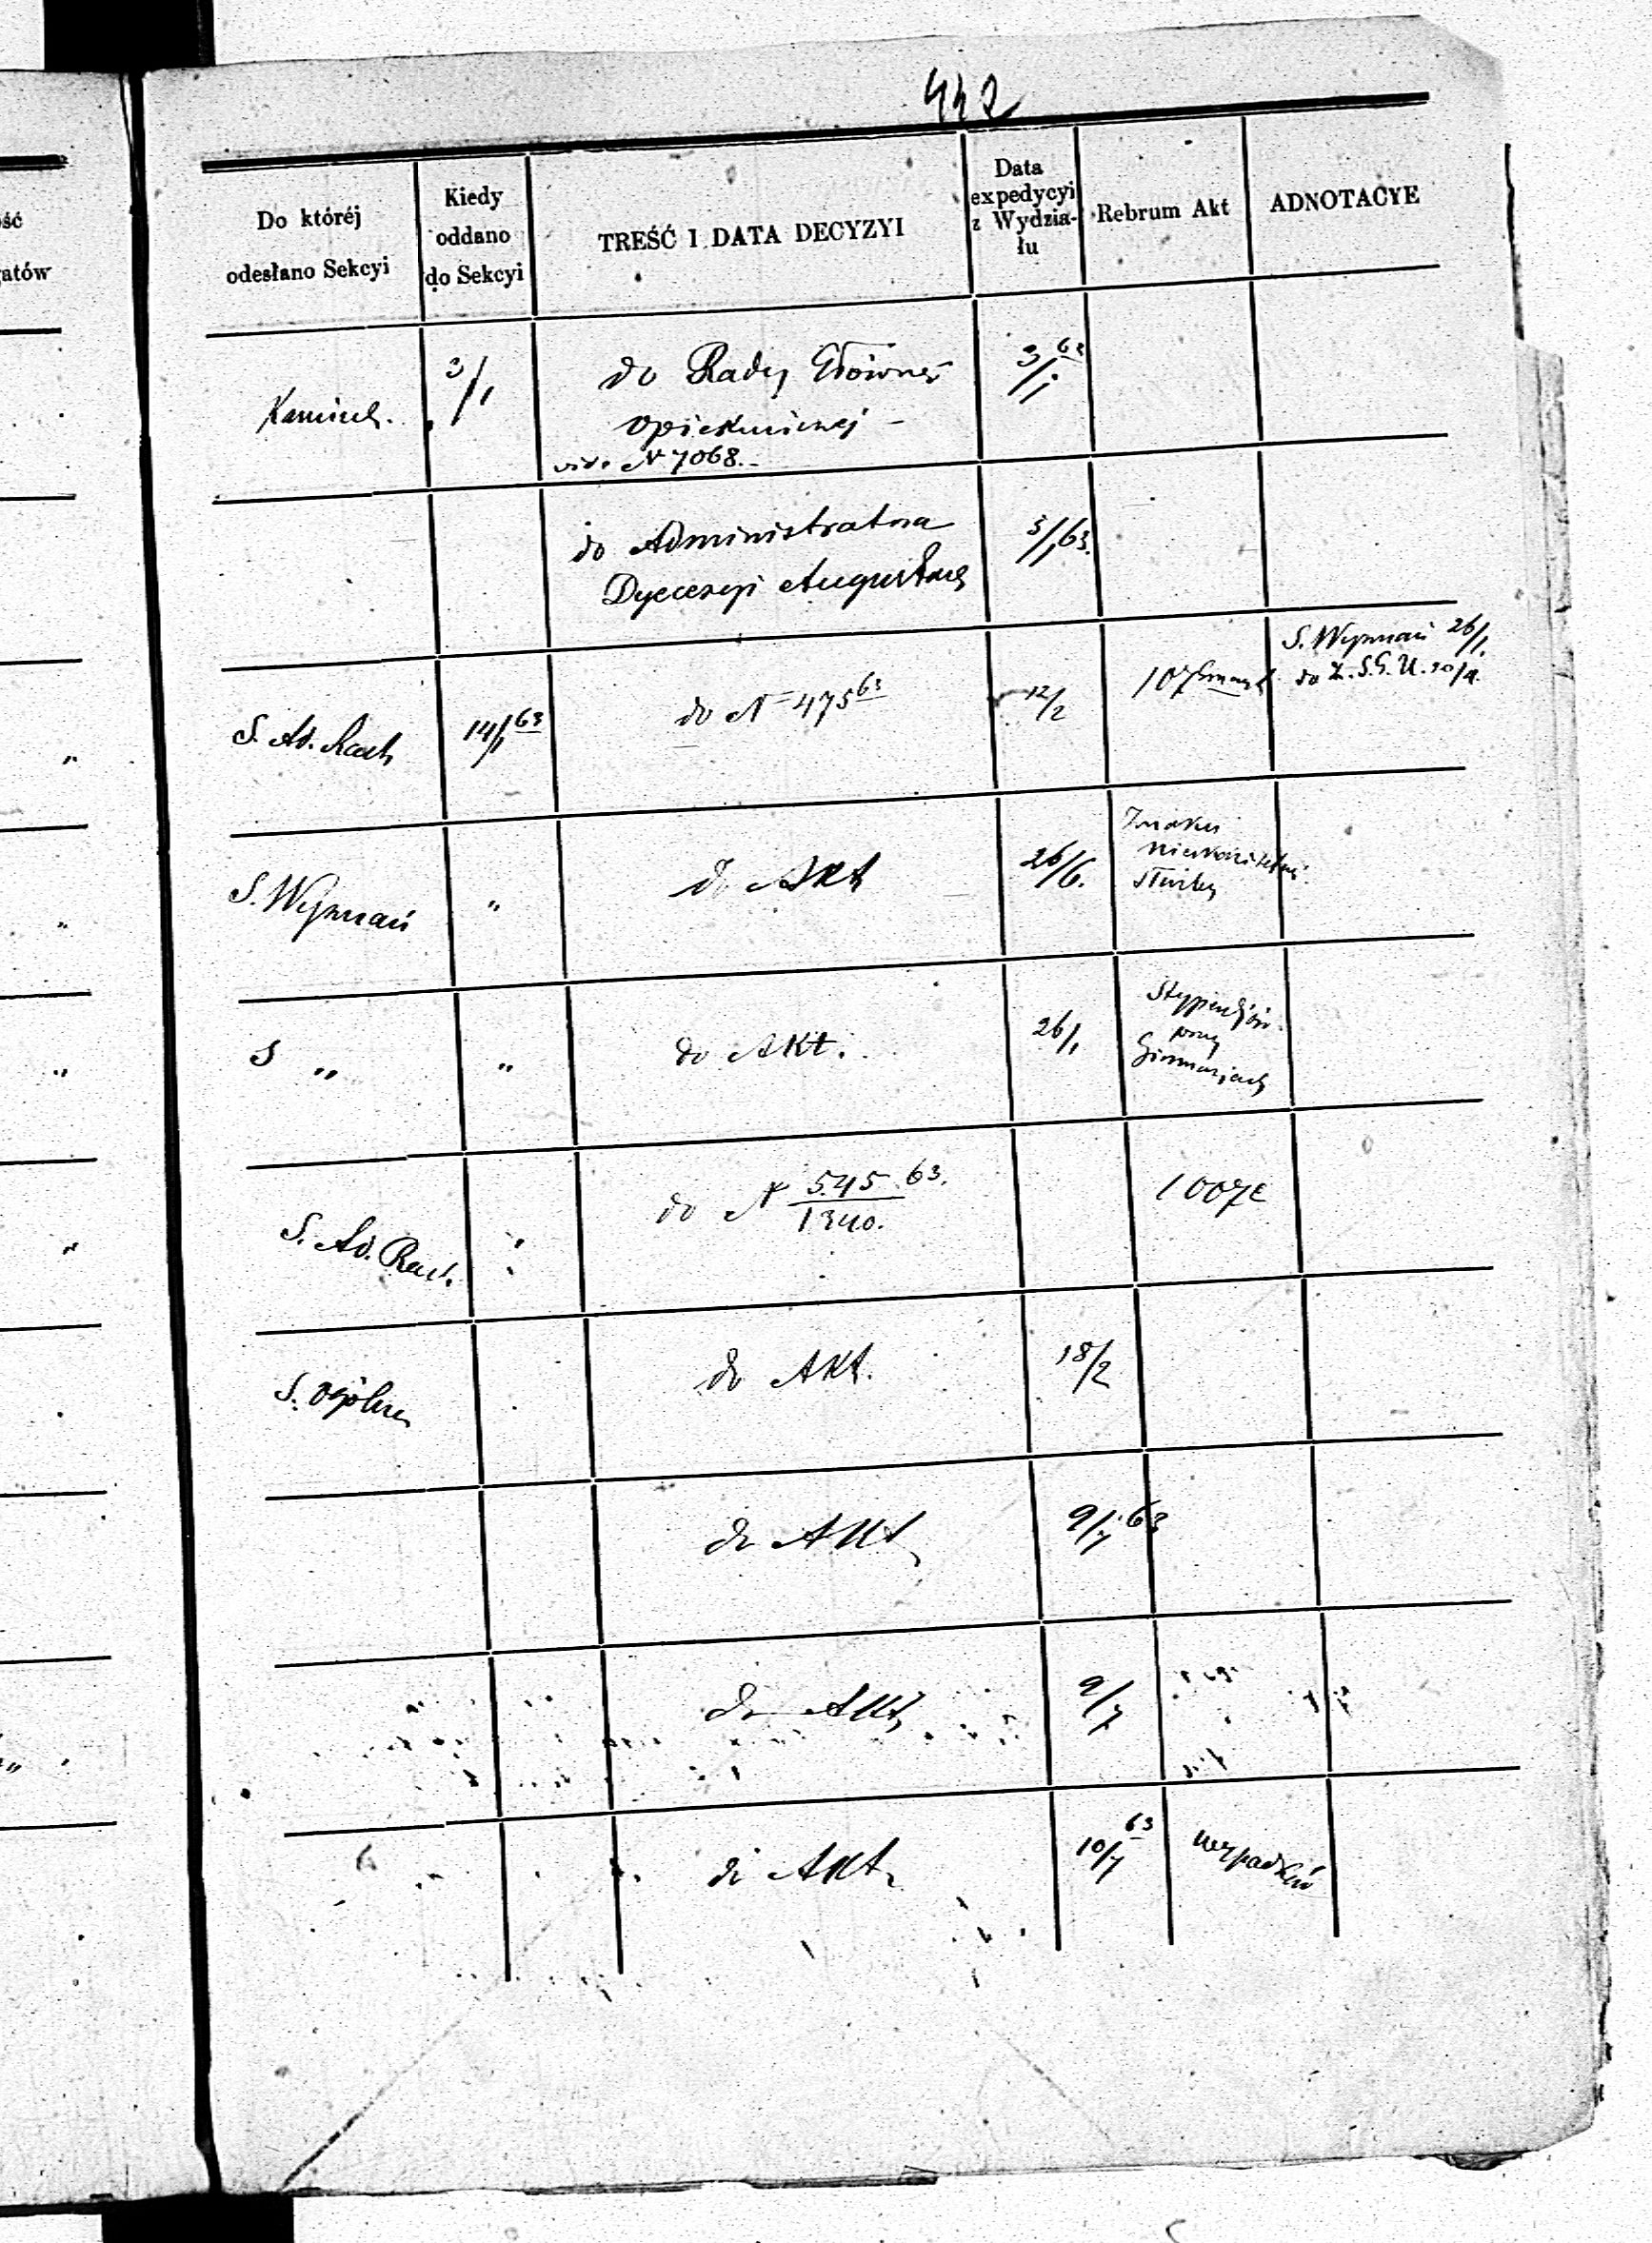 442
ość
atów
Do któréj
odesłano Sekcyi
Kiedy
oddano
do Sekcyi
TREŚĆ I DATA DECYZYI
Data
expedycyi
z Wydzia-
łu
Rebrum Akt
ADNOTACYE
3/1
do Rady Głównéj
Opiekuńczej –
vide N 7068.
3/1 63
do Administratora
Dyecezyi August
5/1 63.
S. Ad. Rach
14/1 63
do N 475 63
12/2
107
S. Wyznań 26/1.
do Z. S. G. U.
S. Wyznań
"
do Akt
26/6.
Znaku
służby
S "
"
do Akt.
26/1
Stypendjów
przy
Gimnazjach
S. Ad. Rach.
"
do N 545 63.
1340.
1007
S. Ogólna
do Akt.
18/2
do Akt
9/7 63
do Akt
9/7
do Akt
10/7 63
wypadków